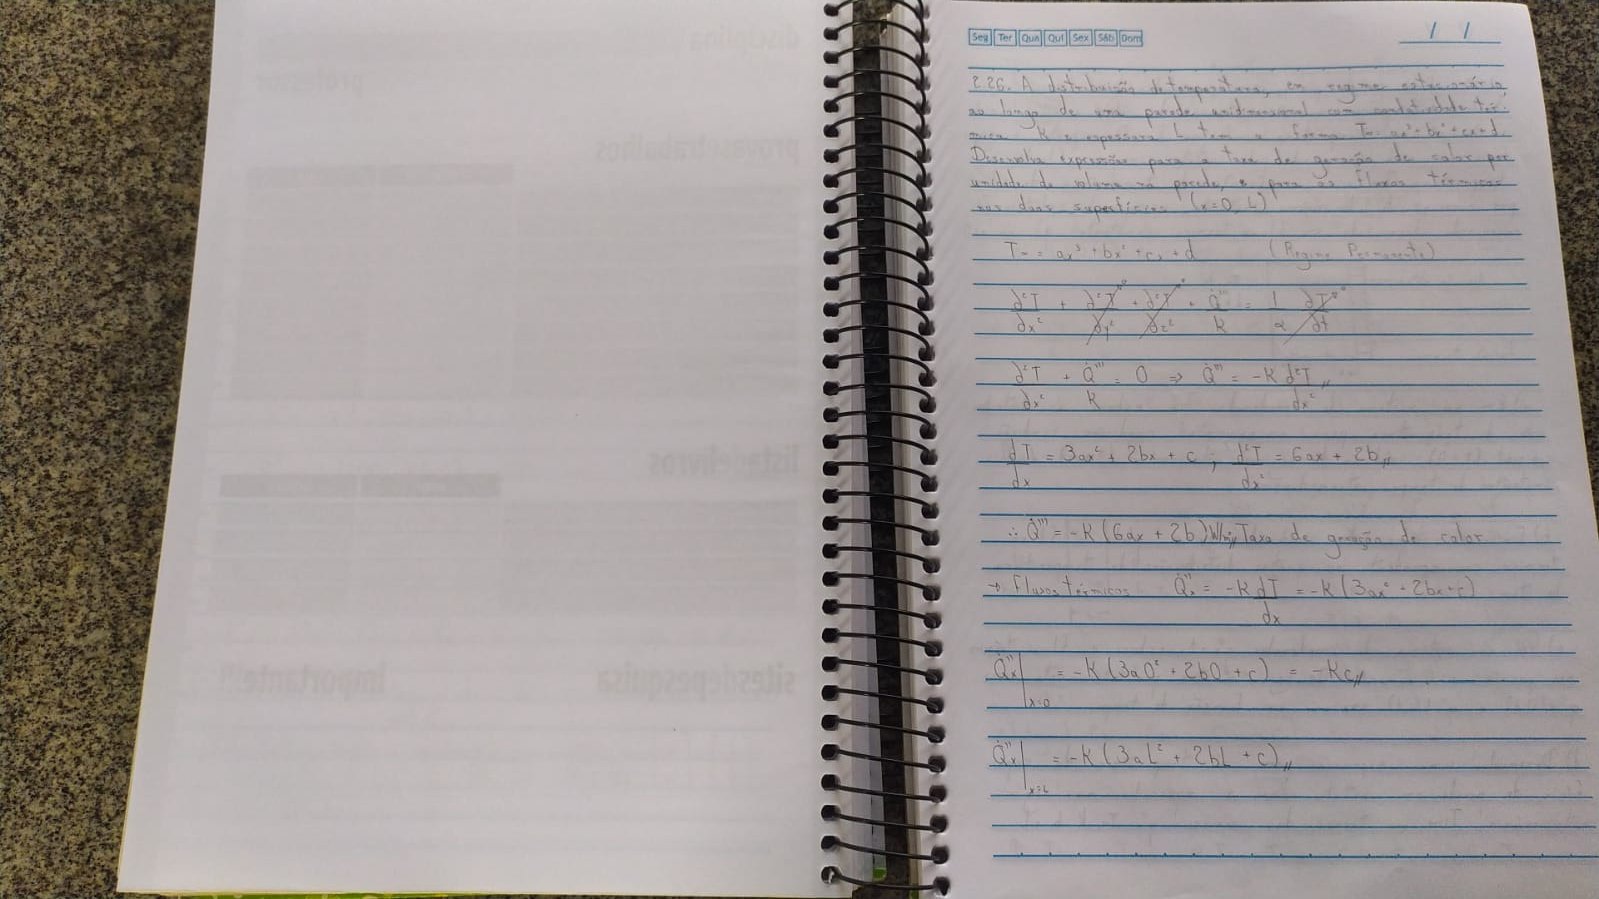 disciplina
professor
provasetrabalhos
listadelivros
sitesdepesquisa
importante!!!
Seg Ter Qua Qui Sex Sáb Dom
/ /
2.26. A distribuição de temperatura, em regime estacionário,
ao longo de uma parede unidimensional com condutividade tér-
mica K e espessura L tem a forma T = ax³ + bx² + cx + d.
Desenvolva expressões para a taxa de geração de calor por
unidade de volume na parede, e para os fluxos térmicos
nas duas superfícies (x=0, L)
T = ax³ + bx² + cx + d (Regime Permanente)
∂²T/∂x² + ∂²T/∂y² + ∂²T/∂z² + Q̇'''/k = 1/α ∂T/∂t
d²T/dx² + Q̇'''/K = 0 ⇒ Q̇''' = -K d²T/dx² //
dT/dx = 3ax² + 2bx + c ; d²T/dx² = 6ax + 2b //
∴ Q̇''' = -K (6ax + 2b) W/m³ // Taxa de geração de calor
→ Fluxos térmicos Q̇''x = -K dT/dx = -K (3ax² + 2bx + c)
Q̇''x |x=0 = -K (3a0² + 2b0 + c) = -Kc //
Q̇''x |x=L = -K (3aL² + 2bL + c) //